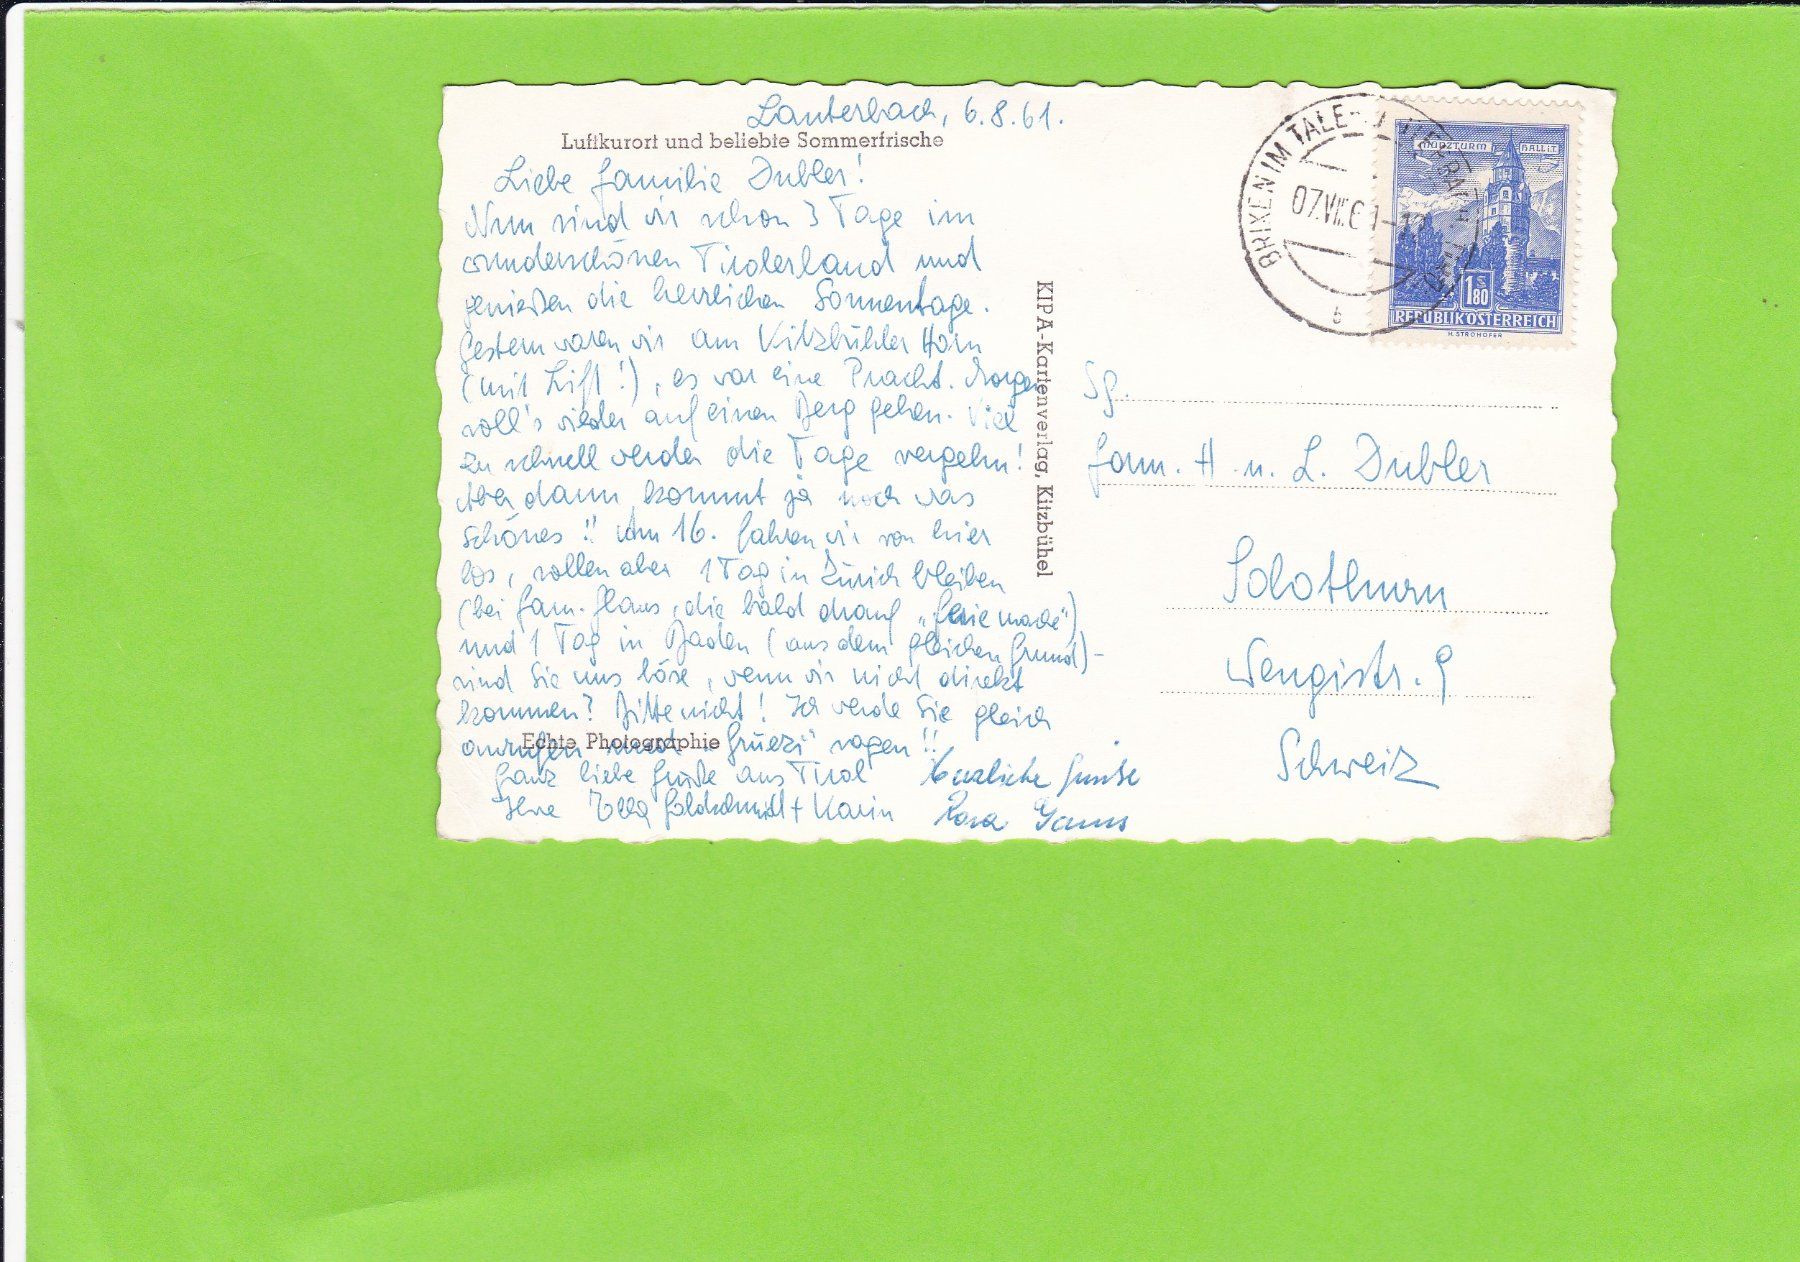 Lauterbach, 6.8.61.
Luftkurort und beliebte Sommerfrische
Liebe Familie Dubler!
Nun sind wir schon 3 Tage im
wunderschönen Tirolerland und
genießen die herrlichen Sonnentage.
Gestern waren wir am Kitzbühler Horn
(mit Lift!), es war eine Pracht. Morgen
soll's wieder auf einen Berg gehen. Viel
zu schnell werden die Tage vergehn!
Aber dann kommt ja noch was
Schönes!! Am 16. fahren wir von hier
los, wollen aber 1 Tag in Zürich bleiben
(bei Fam. , die bald drauf „Ferie mache")
und 1 Tag in Baden (aus dem gleichen Grund) -
sind Sie uns böse, wenn wir nicht direkt
kommen? Bitte nicht! Ich werde Sie gleich
anrufen und „Grüezi" sagen!!
Echte Photographie
Ganz liebe Grüße aus Tirol
Ihre Goldschmidt + Karin
Herzliche Grüsse
Rosa
KIPA-Kartenverlag, Kitzbühel
BRIXEN IM TALE
07.VIII.61-12
b
MÜNZTURM HALL i.T.
1 S 80
REPUBLIK ÖSTERREICH
H. STROHOFER
Fam. H. u. L. Dubler
Solothurn
Wengistr. 9
Schweiz